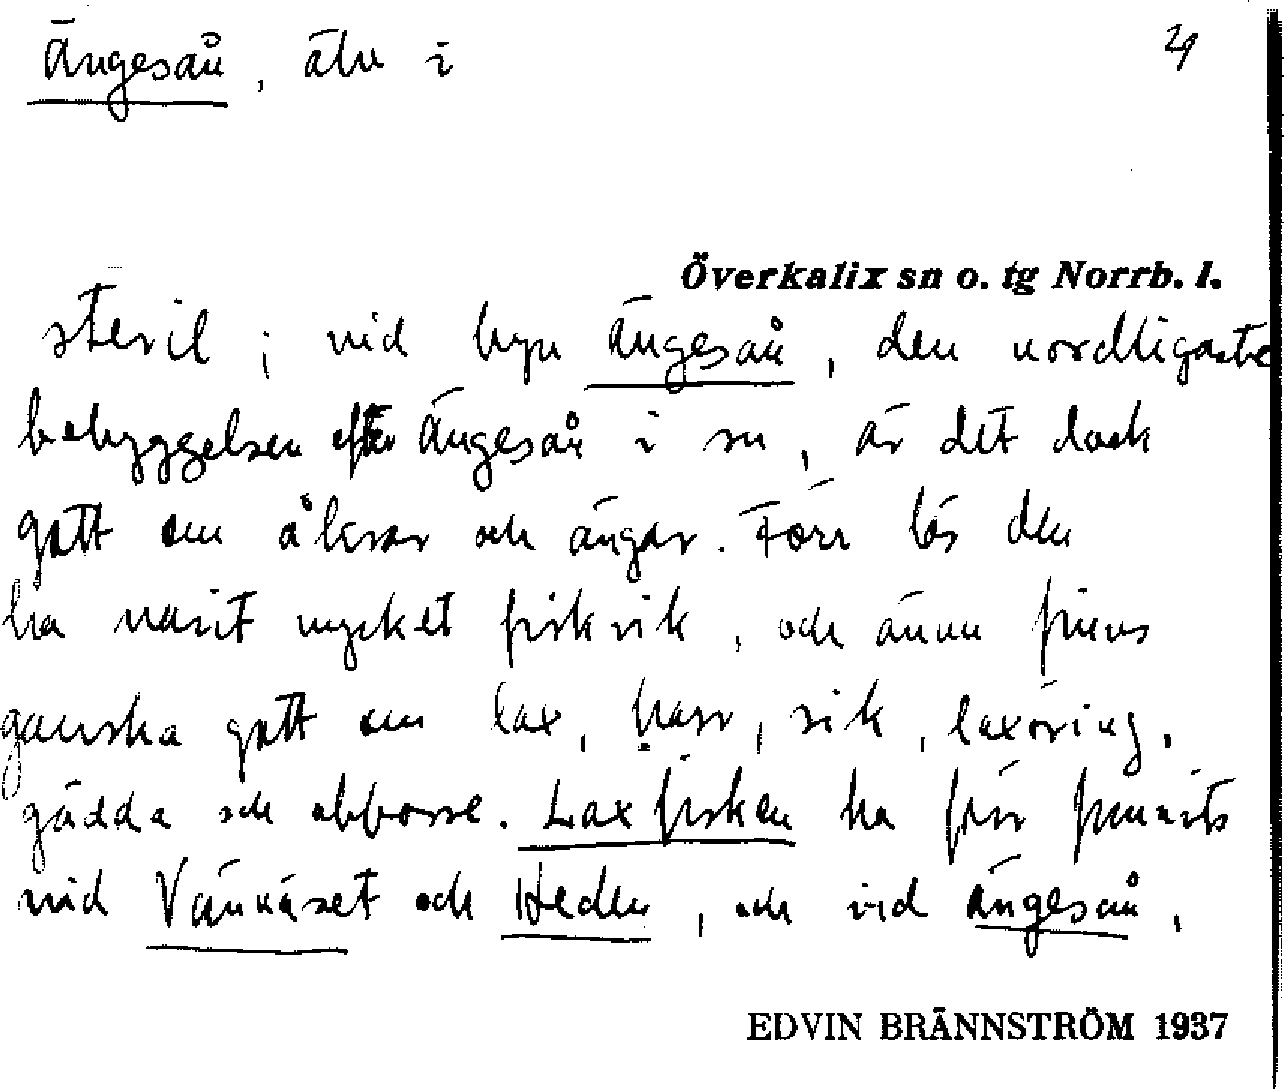 Ängesån, älv i 4
Överkalix sn o. tg Norrb. l.
steril; vid byn Ängesån, den nordligaste
bebyggelsen efter Ängesån i sn, är det dock
gott om åkrar och ängar. Förr lär den
ha varit mycket fiskrik, och ännu finns
ganska gott om lax, harr, sik, laxöring,
gädda och abborre. Laxfisken ha förr funnits
vid Vännäset och Heden, och vid Ängesån,
EDVIN BRÄNNSTRÖM 1937